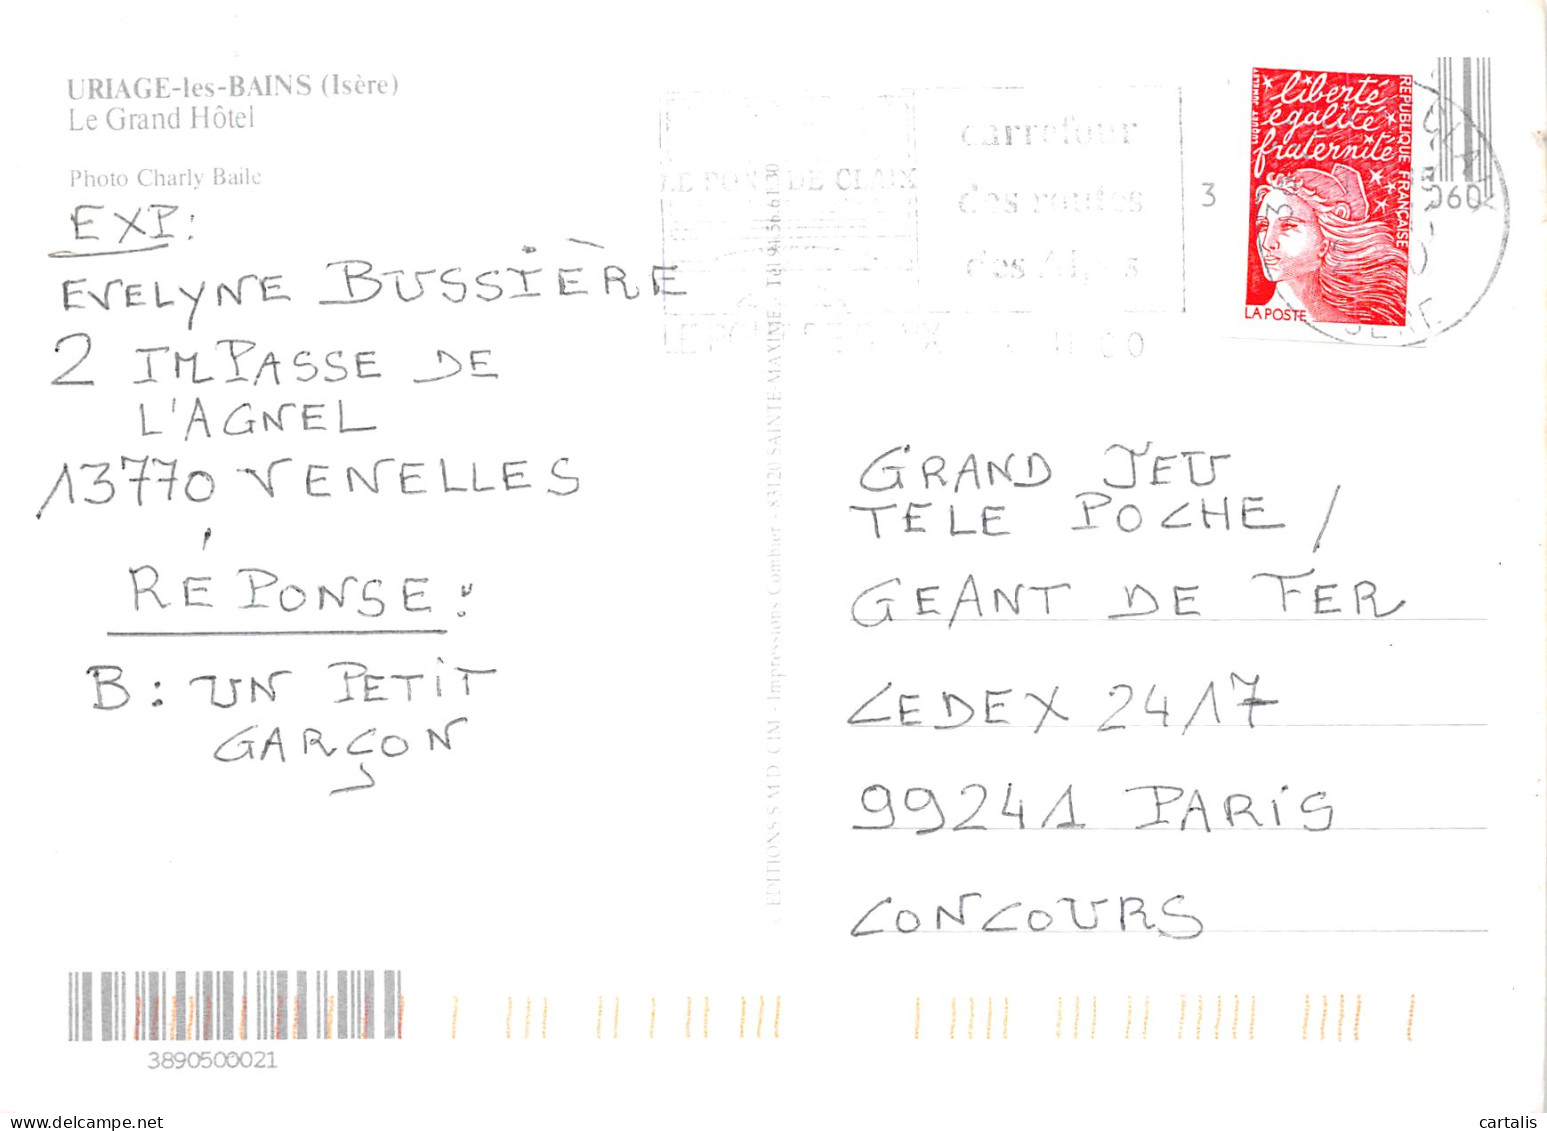 URIAGE-les-BAINS (Isère)
Le Grand Hôtel
Photo Charly Baile
EXP:
EVELYNE BUSSIÈRE
2 IMPASSE DE
L'AGNEL
13770 VENELLES
RÉPONSE:
B: UN PETIT
GARÇON
3890500021
EDITIONS S.M.D. CIM - Impressions Combier - 83120 SAINTE-MAXIME - Tél 94.56.61.30
LE PONT DE CLAIX
carrefour
des routes
des Alpes
LE PONT DE CLAIX
3
liberté
égalité
fraternité
RÉPUBLIQUE FRANÇAISE
LUQUET JUMELET
LA POSTE
060
ISERE
GRAND JEU
TELE POCHE /
GEANT DE FER
CEDEX 2417
99241 PARIS
CONCOURS
cartalis